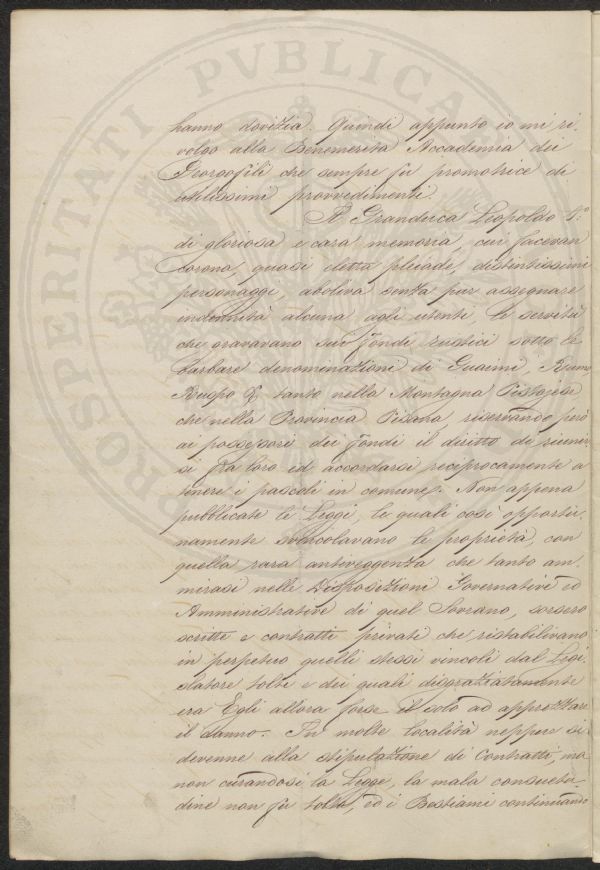 PROSPERITATI PVBLICAE
hanno dovizia. Quindi appunto io mi ri=
volgo alla Benemerita Accademia dei
Georgofili che sempre fu promotrice di
utilissimi provvedimenti.
Il Granduca Leopoldo 1.º
di gloriosa e cara memoria, cui facevan
corona, quasi eletta pleiade, distintissimi
personaggi, aboliva senza pur assegnare
indennità alcuna agli utenti le servitù
che gravavano sui fondi rustici sotto le
barbare denominazioni di Guaimi,
Ruspo & tanto nella Montagna Pistojese
che nella Provincia Pisana, riservando però
ai possessori dei fondi il diritto di riunir=
si fra loro ed accordarsi reciprocamente a
tenere i pascoli in comune. Non appena
pubblicate le Leggi, le quali così opportu=
namente svincolavano le proprietà, con
quella rara antiveggenza che tanto am=
mirasi nelle Disposizioni Governative ed
Amministrative di quel Sovrano, sorsero
scritte e contratti privati che ristabilivano
in perpetuo quelli stessi vincoli dal Legi=
slatore tolti e dei quali disgraziatamente
era Egli allora forse il solo ad apprezzare
il danno. In molte località neppure si
devenne alla stipulazione di Contratti, ma
non curandosi la Legge, la mala consuetu=
dine non fu tolta, ed i Bestiami continuando